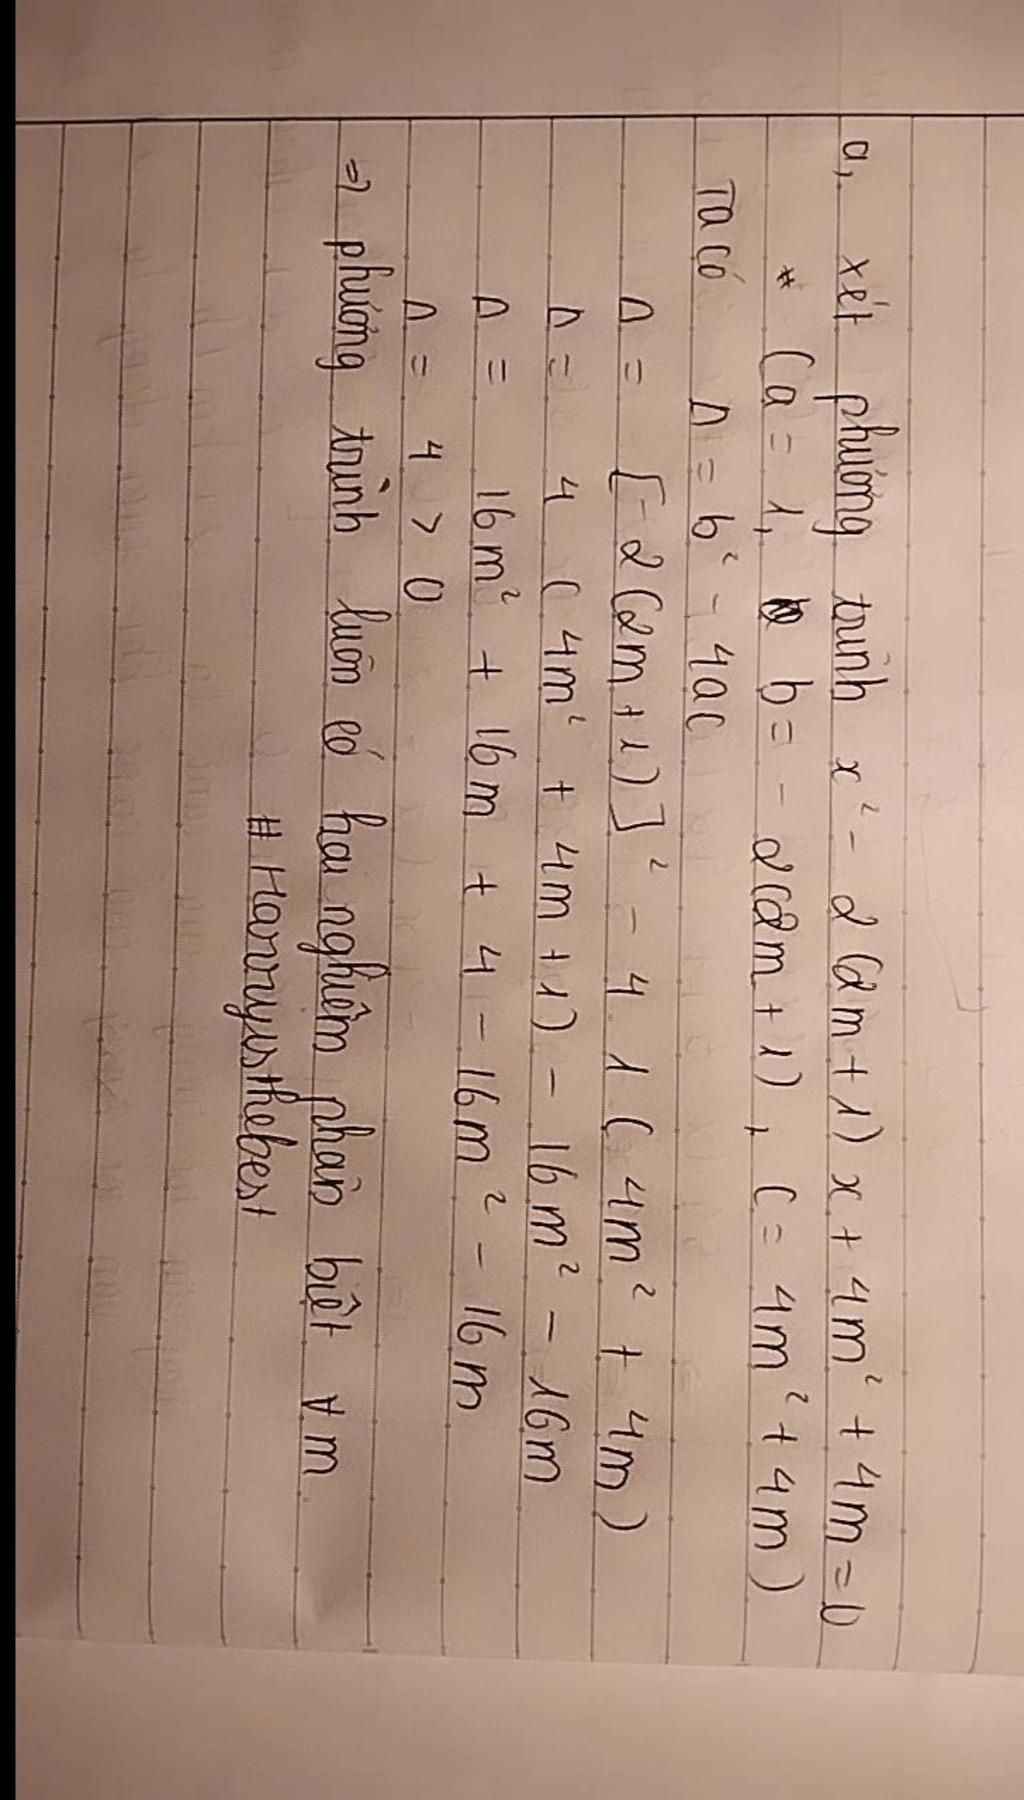 a, xét phương trình x² - 2(2m+1)x + 4m² + 4m = 0
* (a = 1, b = - 2(2m+1), c = 4m² + 4m)
Ta có Δ = b² - 4ac
Δ = [-2(2m+1)]² - 4.1(4m² + 4m)
Δ = 4(4m² + 4m+1) - 16m² - 16m
Δ = 16m² + 16m + 4 - 16m² - 16m
Δ = 4 > 0
=> phương trình luôn có hai nghiệm phân biệt ∀m
# Harryisthebest